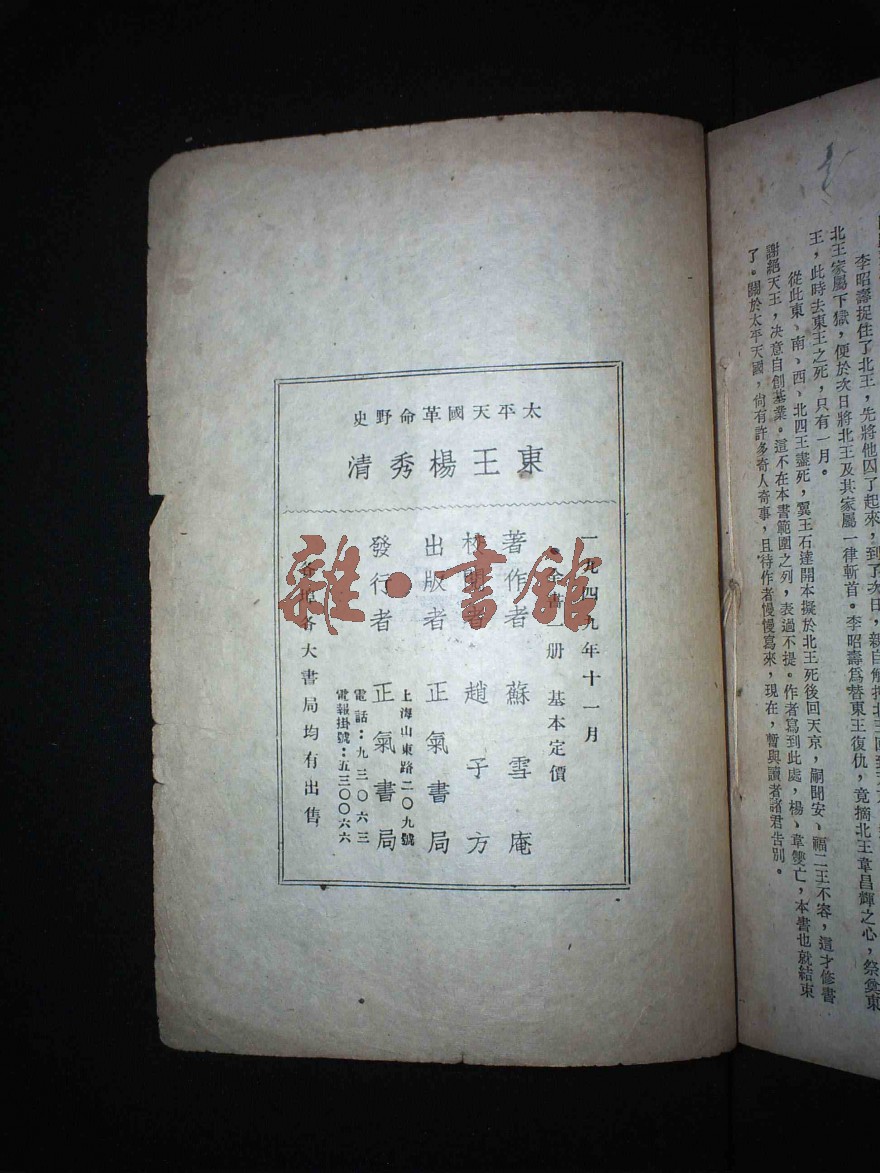 太平天國革命野史
東王楊秀清
一九四九年十一月
全書一册 基本定價
著作者 蘇雪庵
校閱者 趙子方
出版者 正氣書局
發行者 正氣書局
上海山東路二〇九號
電話：九三〇六三
電報掛號：五三〇〇六六
各埠各大書局均有出售
雜·書館
李昭壽捉住了北王，先將他囚了起來，到了次日，親自解押北王回到
北王家屬下獄，便於次日將北王及其家屬一律斬首。李昭壽爲替東王復仇，竟摘北王韋昌輝之心，祭奠東
王，此時去東王之死，只有一月。
從此東、南、西、北四王盡死，翼王石達開本擬於北王死後回天京，嗣聞安、福二王不容，這才修書
謝絕天王，决意自創基業。這不在本書範圍之列，表過不提。作者寫到此處，楊、韋雙亡，本書也就結束
了。關於太平天國，尙有許多奇人奇事，且待作者慢慢寫來，現在，暫與讀者諸君告別。